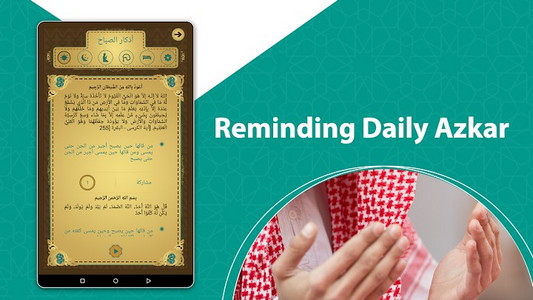 أذكار الصباح
أعوذ بالله من الشيطان الرجيم
الله لا إله إلا هو الحي القيوم لا تأخذه سنة ولا نوم
له ما في السماوات وما في الأرض من ذا الذي يشفع
عنده إلا بإذنه يعلم ما بين أيديهم وما خلفهم ولا
يحيطون بشيء من علمه إلا بما شاء وسع كرسيه
السماوات والأرض ولا يؤوده حفظهما وهو العلي
العظيم. [آية الكرسى - البقرة 255]
من قالها حين يصبح أجير من الجن حتى
يمسى ومن قالها حين يمسى أجير من الجن
حتى يصبح
مشاركة
١
بسم الله الرحمن الرحيم
قل هو الله أحد، الله الصمد، لم يلد ولم يولد، ولم
يكن له كفوا أحد
من قالها حين يصبح وحين يمسى كفته من
Reminding Daily Azkar